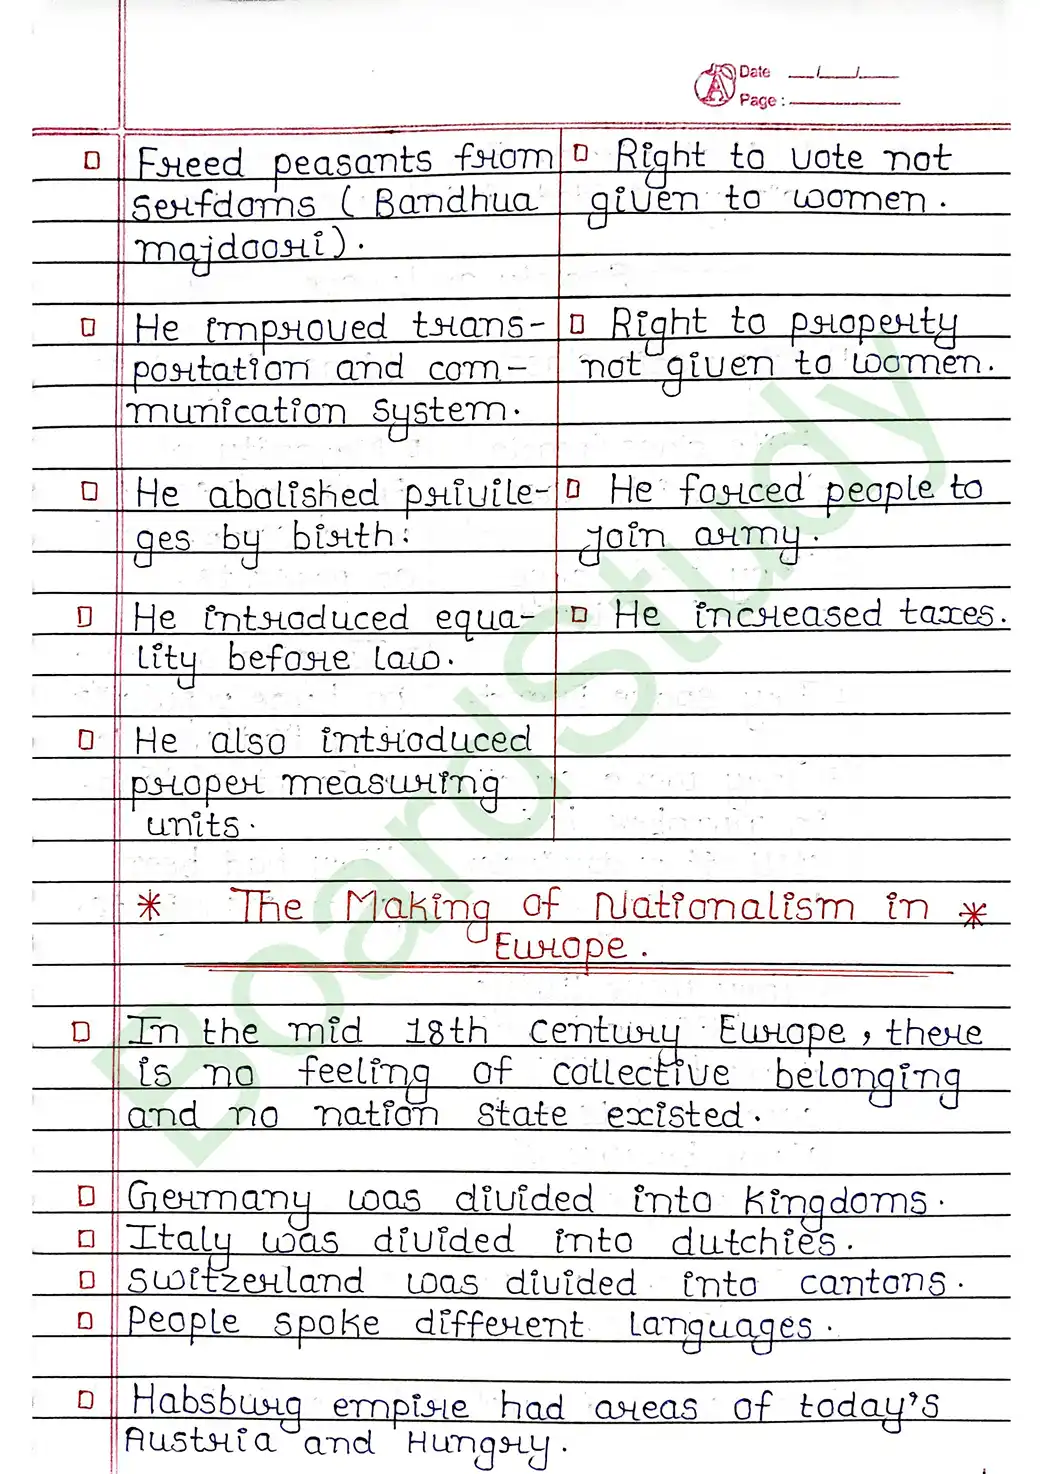 Date __/__/__
Page : ______
Freed peasants from
serfdoms ( Bandhua
majdoori).
He improved trans-
portation and com-
munication system.
He abolished privile-
ges by birth.
He introduced equa-
lity before law.
He also introduced
proper measuring
units.
Right to vote not
given to women.
Right to property
not given to women.
He forced people to
join army.
He increased taxes.
* The Making of Nationalism in *
Europe.
In the mid 18th century Europe, there
is no feeling of collective belonging
and no nation state existed.
Germany was divided into kingdoms.
Italy was divided into dutchies.
Switzerland was divided into cantons.
People spoke different languages.
Habsburg empire had areas of today's
Austria and Hungry.
BoardStudy